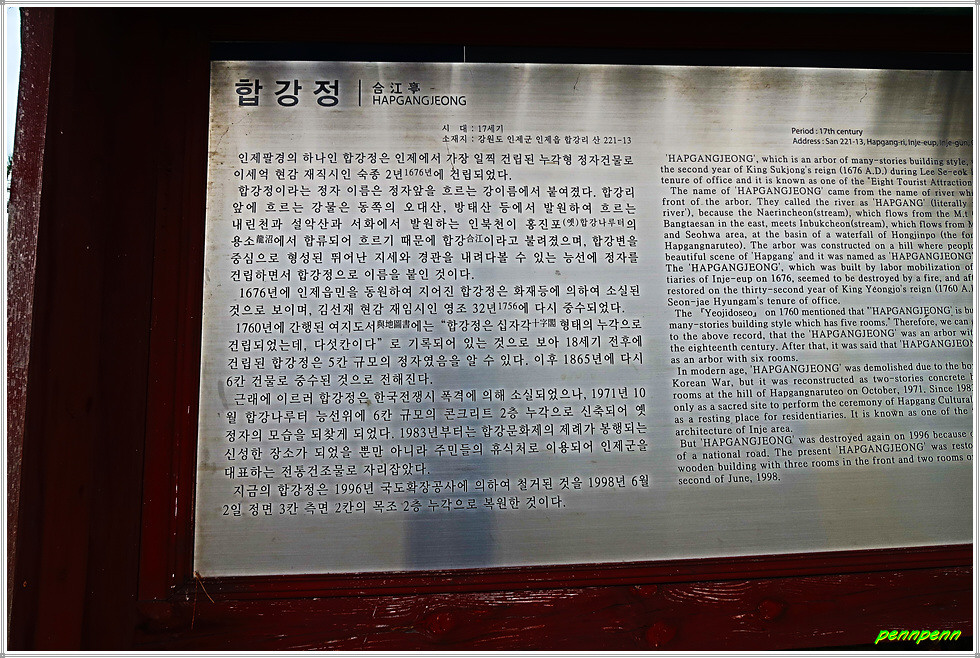 합강정
合江亭
HAPGANGJEONG
시 대 : 17세기
소재지 : 강원도 인제군 인제읍 합강리 산 221-13
인제팔경의 하나인 합강정은 인제에서 가장 일찍 건립된 누각형 정자건물로
이세억 현감 재직시인 숙종 2년1676년에 건립되었다.
합강정이라는 정자 이름은 정자앞을 흐르는 강이름에서 붙여졌다. 합강리
앞에 흐르는 강물은 동쪽의 오대산, 방태산 등에서 발원하여 흐르는
내린천과 설악산과 서화에서 발원하는 인북천이 홍진포(옛)합강나루터의
용소龍沼에서 합류되어 흐르기 때문에 합강合江이라고 불려졌으며, 합강변을
중심으로 형성된 뛰어난 지세와 경관을 내려다볼 수 있는 능선에 정자를
건립하면서 합강정으로 이름을 붙인 것이다.
1676년에 인제읍민을 동원하여 지어진 합강정은 화재등에 의하여 소실된
것으로 보이며, 김선재 현감 재임시인 영조 32년1756에 다시 중수되었다.
1760년에 간행된 여지도서與地圖書에는 “합강정은 십자각十字閣 형태의 누각으로
건립되었는데, 다섯칸이다” 로 기록되어 있는 것으로 보아 18세기 전후에
건립된 합강정은 5칸 규모의 정자였음을 알 수 있다. 이후 1865년에 다시
6칸 건물로 중수된 것으로 전해진다.
근래에 이르러 합강정은 한국전쟁시 폭격에 의해 소실되었으나, 1971년 10
월 합강나루터 능선위에 6칸 규모의 콘크리트 2층 누각으로 신축되어 옛
정자의 모습을 되찾게 되었다. 1983년부터는 합강문화제의 제례가 봉행되는
신성한 장소가 되었을 뿐만 아니라 주민들의 휴식처로 이용되어 인제군을
대표하는 전통건조물로 자리잡았다.
지금의 합강정은 1996년 국도확장공사에 의하여 철거된 것을 1998년 6월
2일 정면 3칸 측면 2칸의 목조 2층 누각으로 복원한 것이다.
Period : 17th century
Address : San 221-13, Hapgang-ri, Inje-eup, Inje-gun,
'HAPGANGJEONG', which is an arbor of many-stories building style,
the second year of King Sukjong's reign (1676 A.D.) during Lee Se-eok
tenure of office and it is known as one of the "Eight Tourist Attraction
The name of 'HAPGANGJEONG' came from the name of river
front of the arbor. They called the river as 'HAPGANG' (literally
river'), because the Naerincheon(stream), which flows from the M.t
Bangtaesan in the east, meets Inbukcheon(stream), which flows from
and Seohwa area, at the basin of a waterfall of Hongjinpo (the
Hapgangnaruteo). The arbor was constructed on a hill where people
beautiful scene of 'Hapgang' and it was named as 'HAPGANGJEONG'
The 'HAPGANGJEONG', which was built by labor mobilization of
tiaries of Inje-eup on 1676, seemed to be destroyed by a fire, and
restored on the thirty-second year of King Yeongjo's reign (1760 A.
Seon-jae Hyungam's tenure of office.
The 『Yeojidoseo』 on 1760 mentioned that "HAPGANGJEONG' is
many-stories building style which has five rooms." Therefore, we can
to the above record, that the 'HAPGANGJEONG' was an arbor
the eighteenth century. After that, it was said that 'HAPGANGJEON
as an arbor with six rooms.
In modern age, 'HAPGANGJEONG' was demolished due to the
Korean War, but it was reconstructed as two-stories concrete
rooms at the hill of Hapgangnaruteo on October, 1971. Since
only as a sacred site to perform the ceremony of Hapgang Cultural
as a resting place for residentiaries. It is known as one of the
architecture of Inje area.
But 'HAPGANGJEONG' was destroyed again on 1996 because
of a national road. The present 'HAPGANGJEONG' was
wooden building with three rooms in the front and two rooms
second of June, 1998.
pennpenn